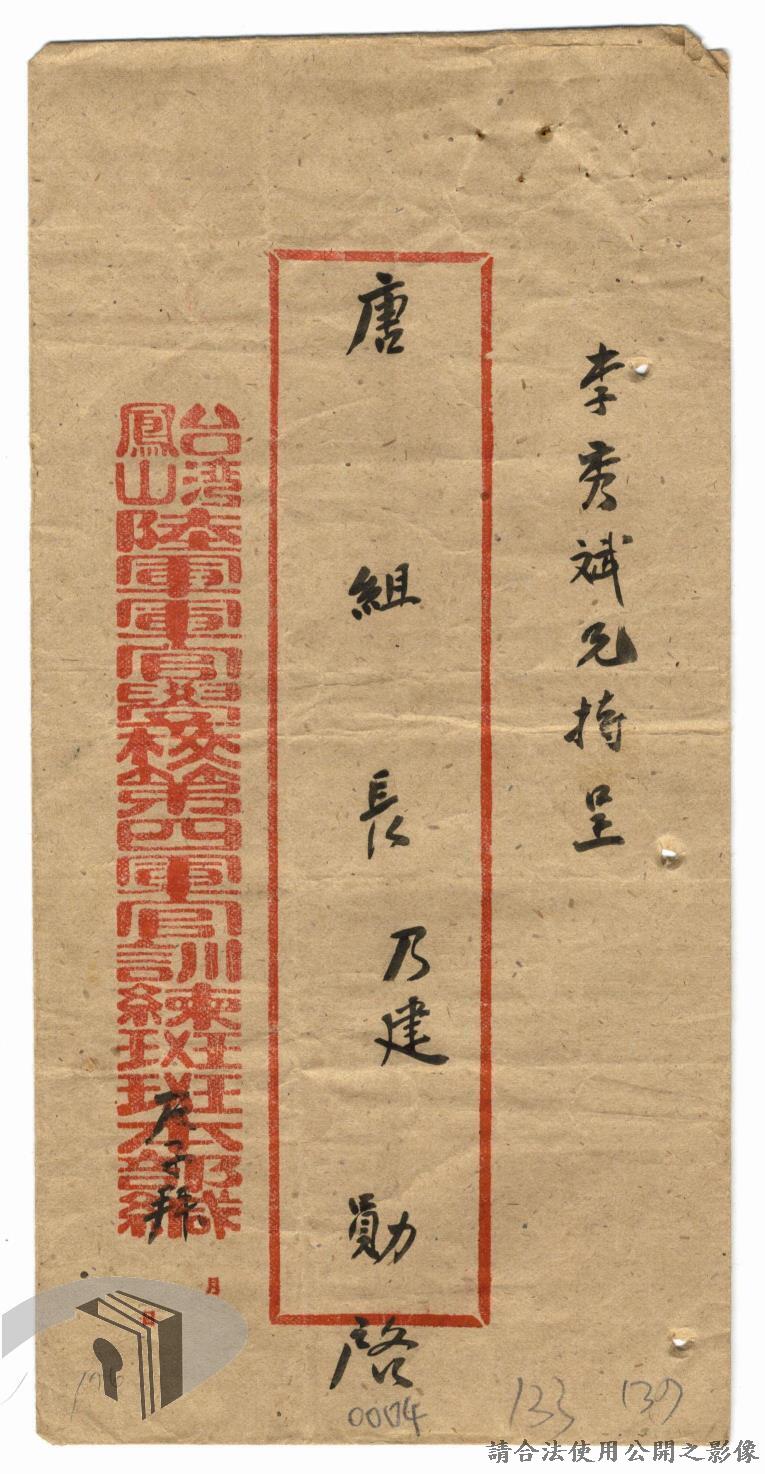 李秀斌兄持呈
唐組長乃建勛啓
台灣
鳳山
陸軍軍官學校第四軍官訓練班班本部緘
拜
月
日
0004
133
137
請合法使用公開之影像